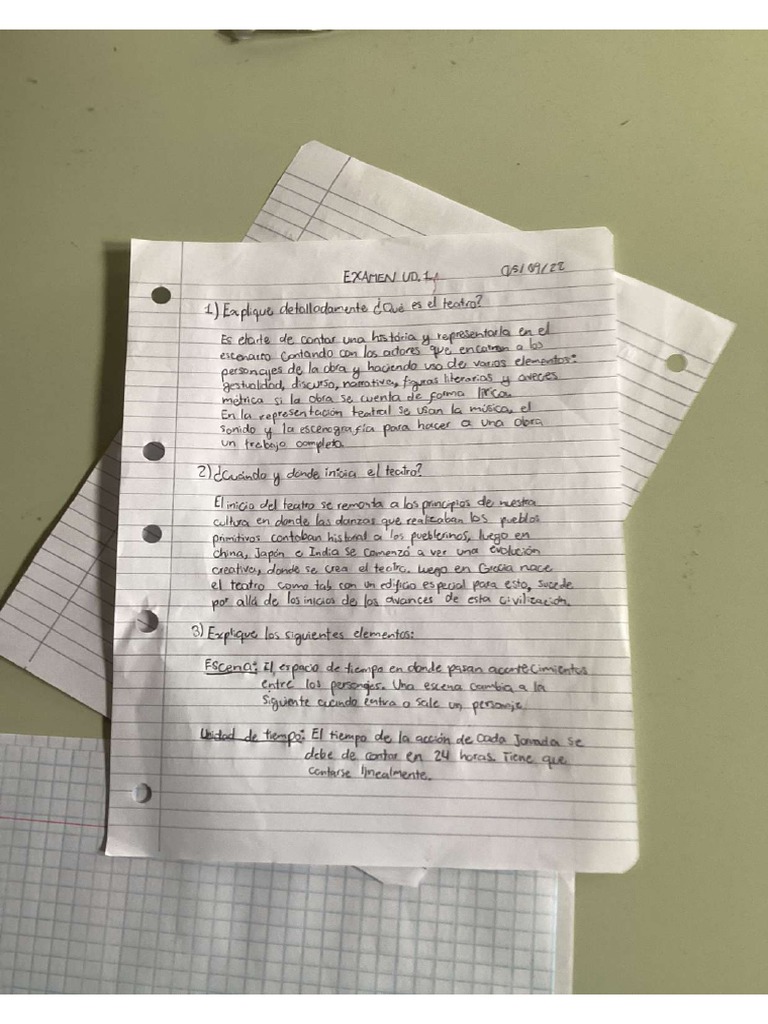 EXAMEN UD.1
05/09/22
1) Explique detalladamente ¿Qué es el teatro?
Es elarte de contar una história y representarla en el
escenario contando con los actores que encarnan a los
personajes de la obra y haciendo uso de varios elementos:
gestualidad, discurso, narrativa, figuras literarias y aveces
métrica si la obra se cuenta de forma lírica.
En la representación teatral se usan la música, el
sonido y la escenografía para hacer a una obra
un trabajo completo.
2) ¿Cuándo y donde inicia el teatro?
El inicio del teatro se remonta a los principios de nuestra
cultura en donde las danzas que realizaban los pueblos
primitivos contaban historial a los pueblerinos, luego en
china, Japón e India se comenzó a ver una evolución
creativa, donde se crea el teatro. luego en Grecia nace
el teatro como tal, con un edificio especial para esto, sucede
por allá de los inicios de los avances de esta civilización.
3) Explique los siguientes elementos:
Escena: El espacio de tiempo en donde pasan acontecimientos
entre los personajes. Una escena cambia a la
siguiente cuando entra o sale un personaje
Unidad de tiempo: El tiempo de la acción de cada Jornada se
debe de contar en 24 horas. Tiene que
contarse linealmente.